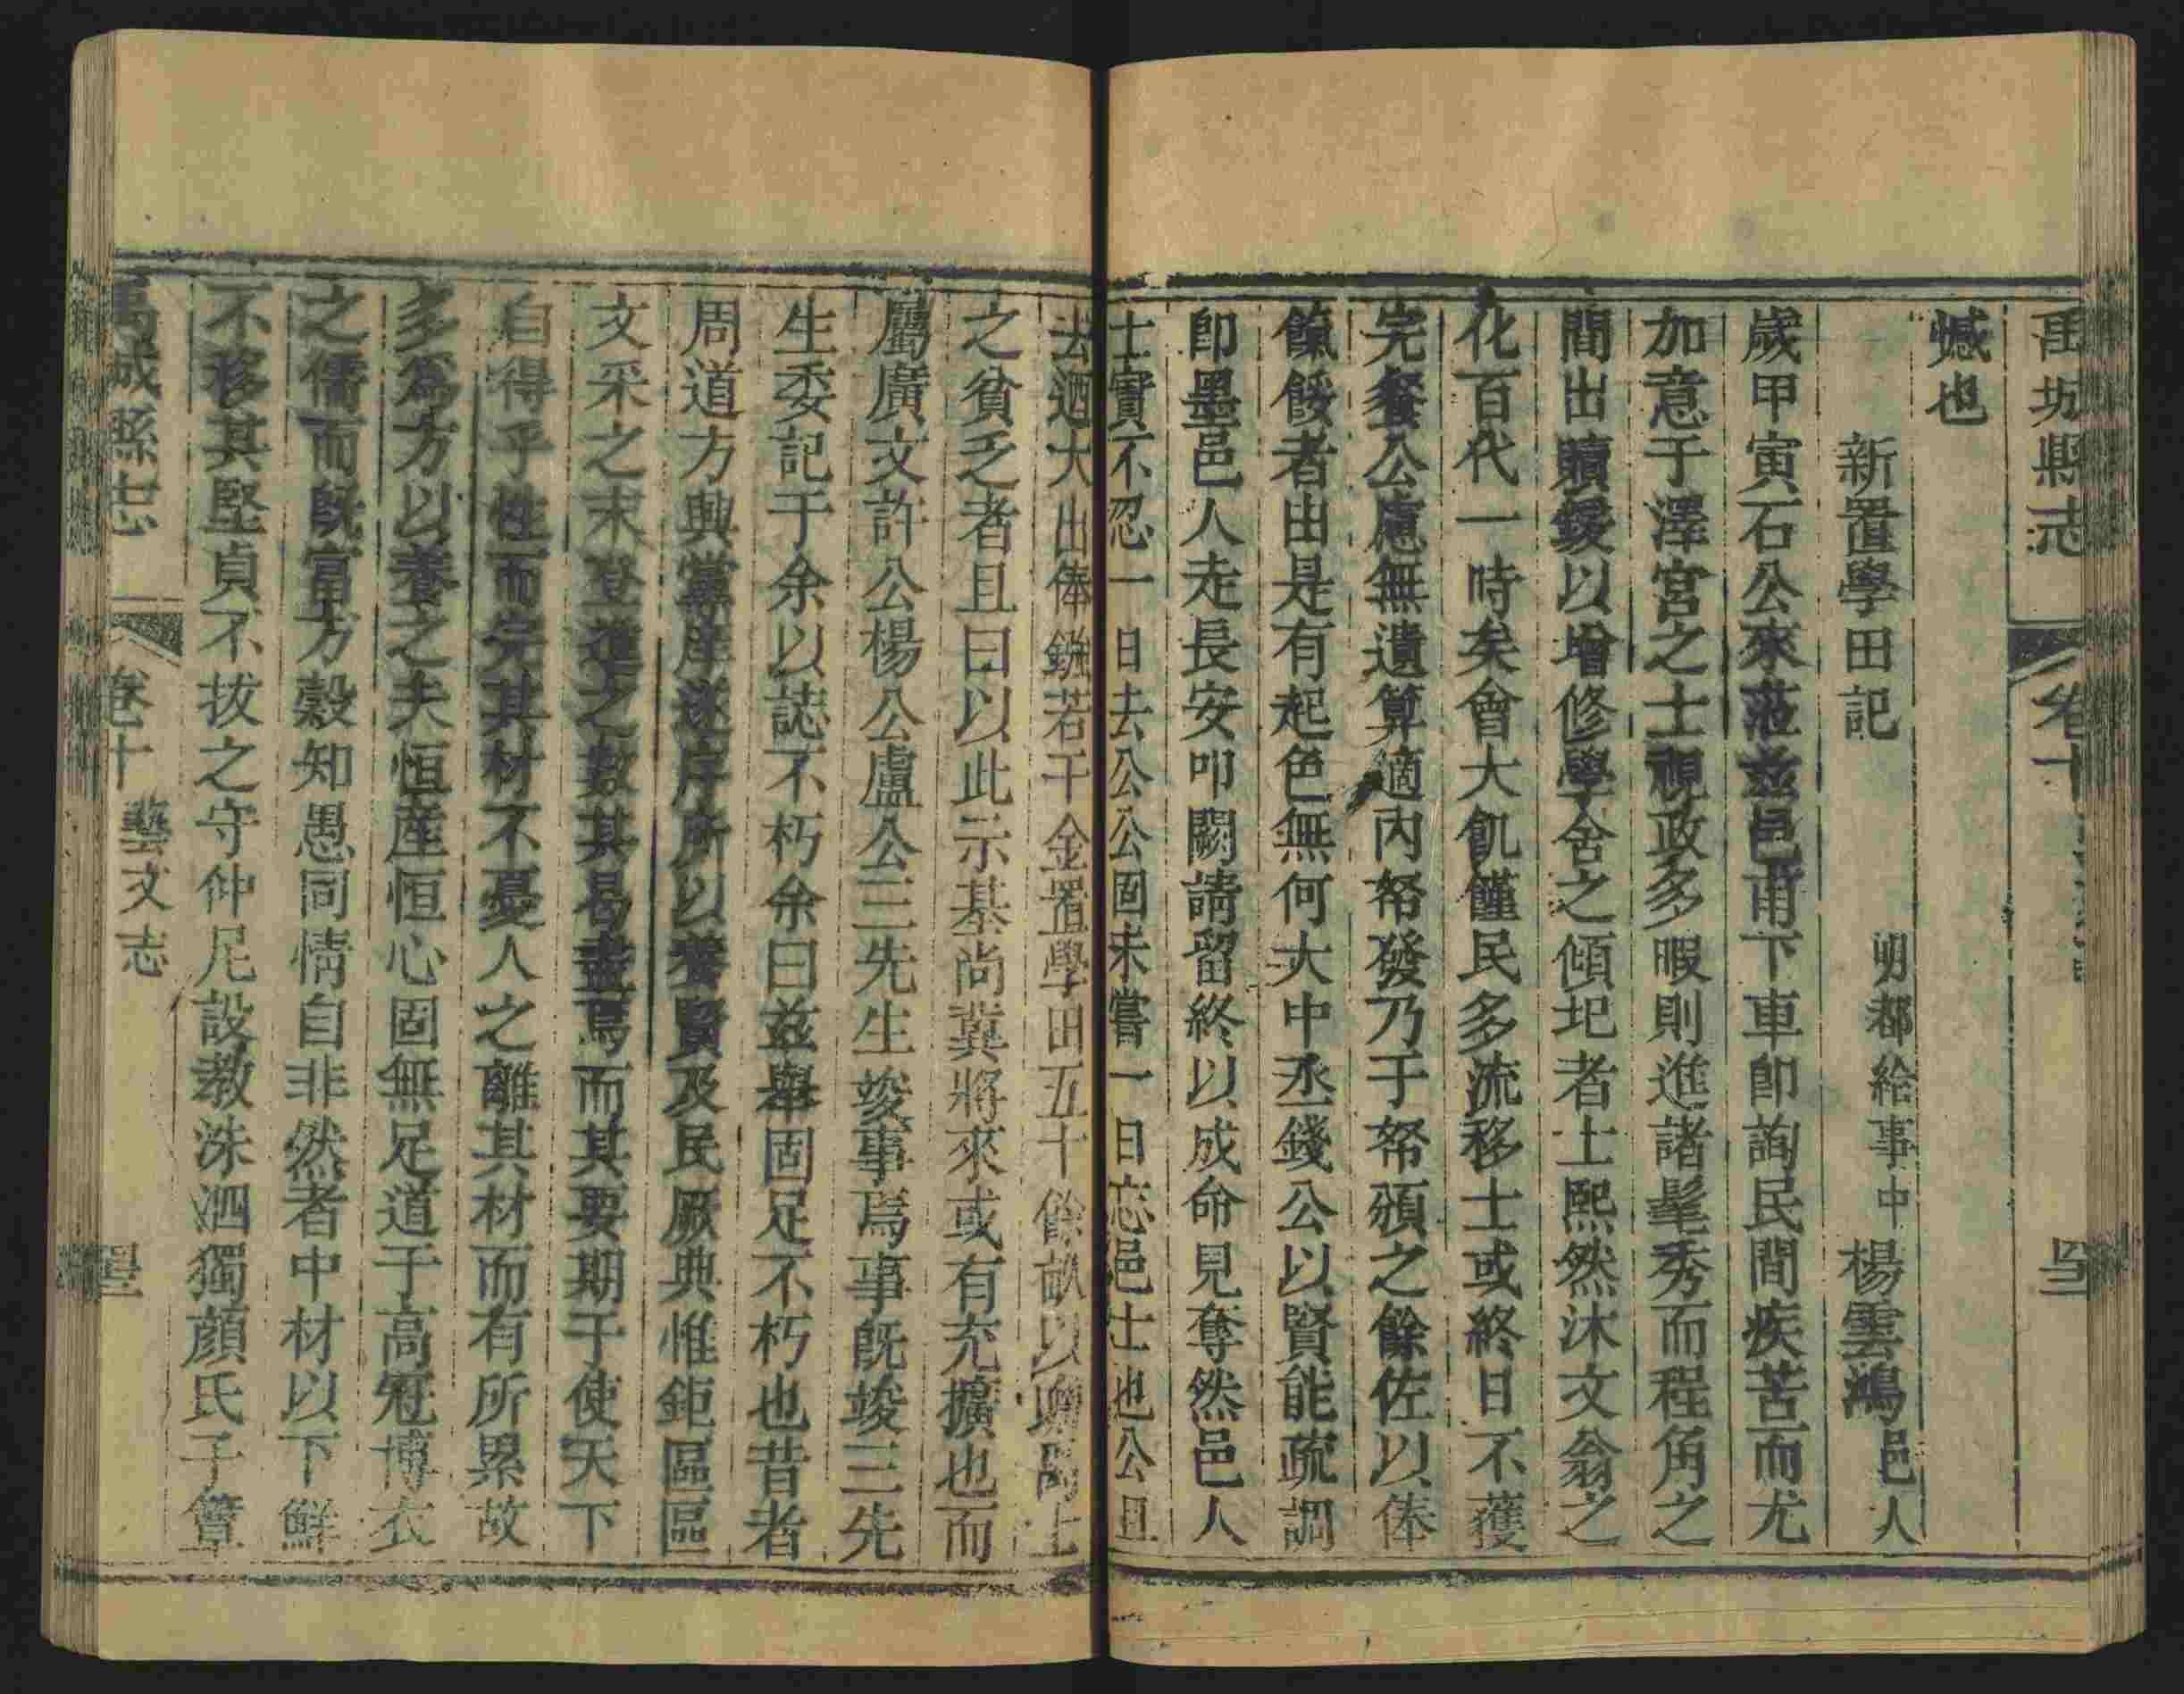 禹城縣志　卷十
憾也
新置學田記
明都給事中楊雲鴻邑人
歲甲寅石公來蒞茲邑甫下車卽詢民間疾苦而尤
加意于澤宮之士視政多暇則進諸髦秀而程角之
間出贖鍰以增修學舍之傾圯者士熙然沐文翁之
化百代一時矣會大飢饉民多流移士或終日不獲
完餐公慮無遺算適內帑發乃于帑頒之餘佐以俸
餼餒者由是有起色無何大中丞錢公以賢能疏調
卽墨邑人走長安叩闕請留終以成命見奪然邑人
士實不忍一日去公公固未嘗一日忘邑士也公且
去迺大出俸鏹若干金置學田五十餘畝以贍禹士
之貧乏者且曰以此示基尚冀將來或有充擴也而
屬廣文許公楊公盧公三先生竣事焉事旣竣三先
生委記于余以誌不朽余曰茲舉固足不朽也昔者
周道方興黨庠遂序所以養賢及民厥典惟鉅區區
文采之末登進之數其曷盡焉而其要期于使天下
自得乎性而完其材不憂人之離其材而有所累故
多爲方以養之夫恒産恒心固無足道于高冠博衣
之儒而旣富方穀知愚同情自非然者中材以下鮮
不移其堅貞不拔之守仲尼設教洙泗獨顏氏子簞
禹城縣志　卷十　藝文志